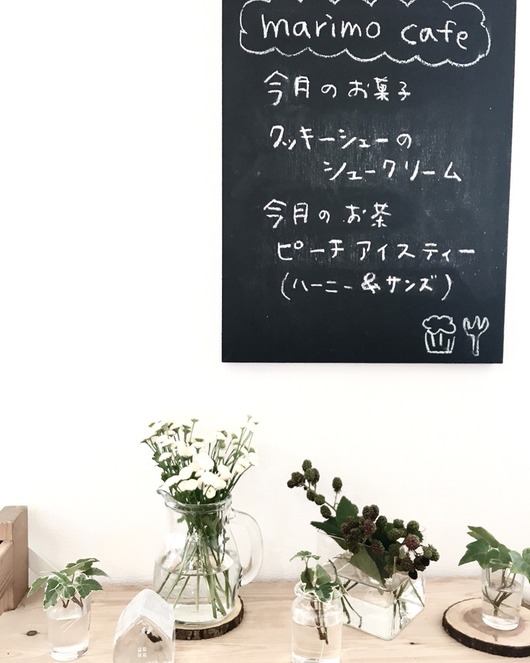 marimo cafe
今月のお菓子
クッキーシューの
シュークリーム
今月のお茶
ピーチアイスティー
(ハーニー&サンズ)